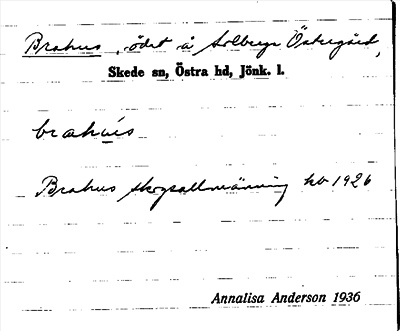 Brahus, ödet å Solberga Östregård,
Skede sn, Östra hd, Jönk. l.
brahùs
Brahus skogsallmänning kb 1926
Annalisa Anderson 1936